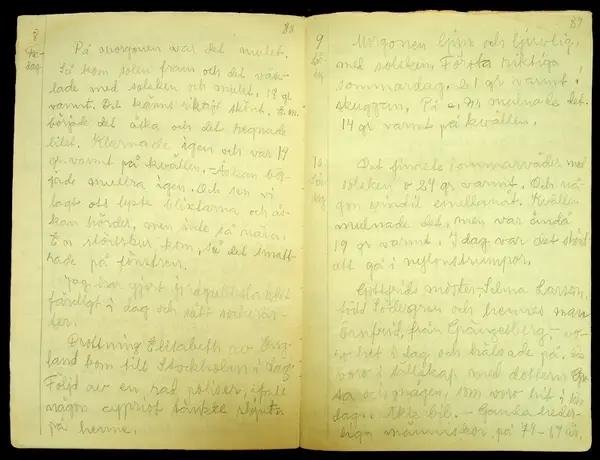 88
8
Fre-
dag
På morgonen var det mulet.
Så kom solen fram och det väx-
lade med solsken och mulet, 18 gr
varmt. Det känns riktigt skönt. E.m.
började det åska och det regnade
litet. Klarnade igen och var 14
gr. varmt på kvällen. Åskan bör-
jade mullra igen. Och sen vi
lagt oss lyste blixtarna och ås-
kan hördes, men inte så nära.
En störtskur kom, så det smatt-
rade på fönstren.
Jag har gjort
färdigt i dag och sått
Drottning Elisabeth av Eng-
land kom till Stockholm i dag.
Följd av en rad poliser, ifall
någon cypriot tänkte skjuta
på henne.
89
9
Lör-
dag
Morgonen ljum och ljuvlig,
med solsken. Första riktiga
sommardag. 21 gr varmt i
skuggan. På e.m. mulnade det.
14 gr varmt på kvällen.
10
Sön-
dag
Det finaste sommarväder med
solsken o 24 gr varmt. Och nå-
gon vindil emellanåt. Kvällen
mulnade det, men var ändå
19 gr varmt. I dag var det skönt
att gå i nylonstrumpor.
Gottfrids moster, Selma Larson,
född Södergren och hennes man
Ernfrid, från Grängesberg – vo-
ro hit i dag och hälsade på. De
voro i sällskap med dottern
och mågen, som voro hit i lör-
dag. Åkte bil. – Ganska heder-
liga människor, på 74 – 69 år.